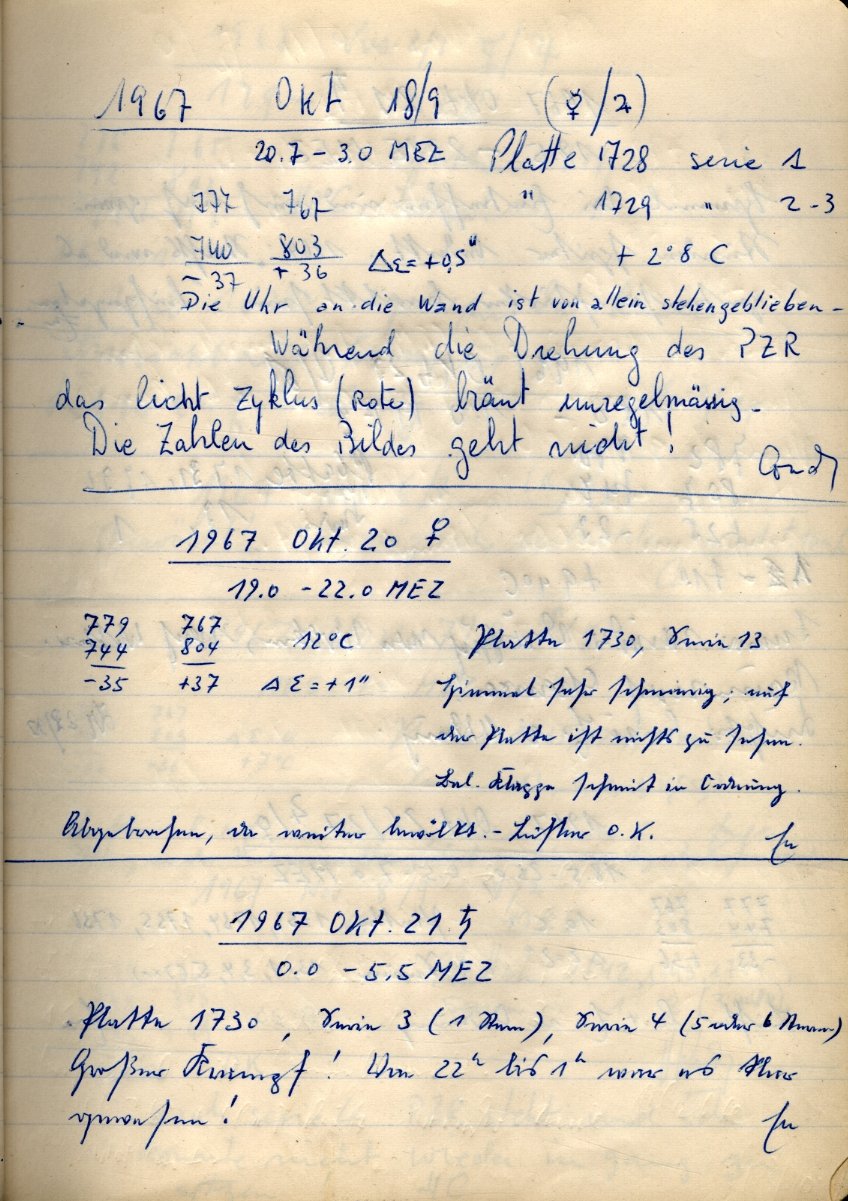 1967 Okt 18/9 (☿/♃)
20.7 – 3.0 MEZ Platte 1728 serie 1
777 767 " 1729 " 2-3
740 803 Δε = +0,5" + 2°8 C
– 37 + 36
Die Uhr an die Wand ist von allein stehengeblieben –
Während die Drehung des PZR
das licht Zyklus (Rote) bränt unregelmässig –
Die Zahlen des Bildes geht nicht!
1967 Okt. 20 ♀
19.0 – 22.0 MEZ
779 767
744 804 12°C Platte 1730, Serie 13
-35 +37 Δε = +1" Himmel sehr schmierig; auf
der Platte ist nichts zu sehen.
Bel. Klappe scheint in Ordnung.
Abgebrochen, da weiter bewölkt. – Lüfter O.K.
1967 Okt. 21. ♄
0.0 – 5.5 MEZ
Platte 1730, Serie 3 (1 Stern), Serie 4 (5 oder 6 Sterne)
Großer Krampf! Von 22ʰ bis 1ʰ war es klar
gewesen!